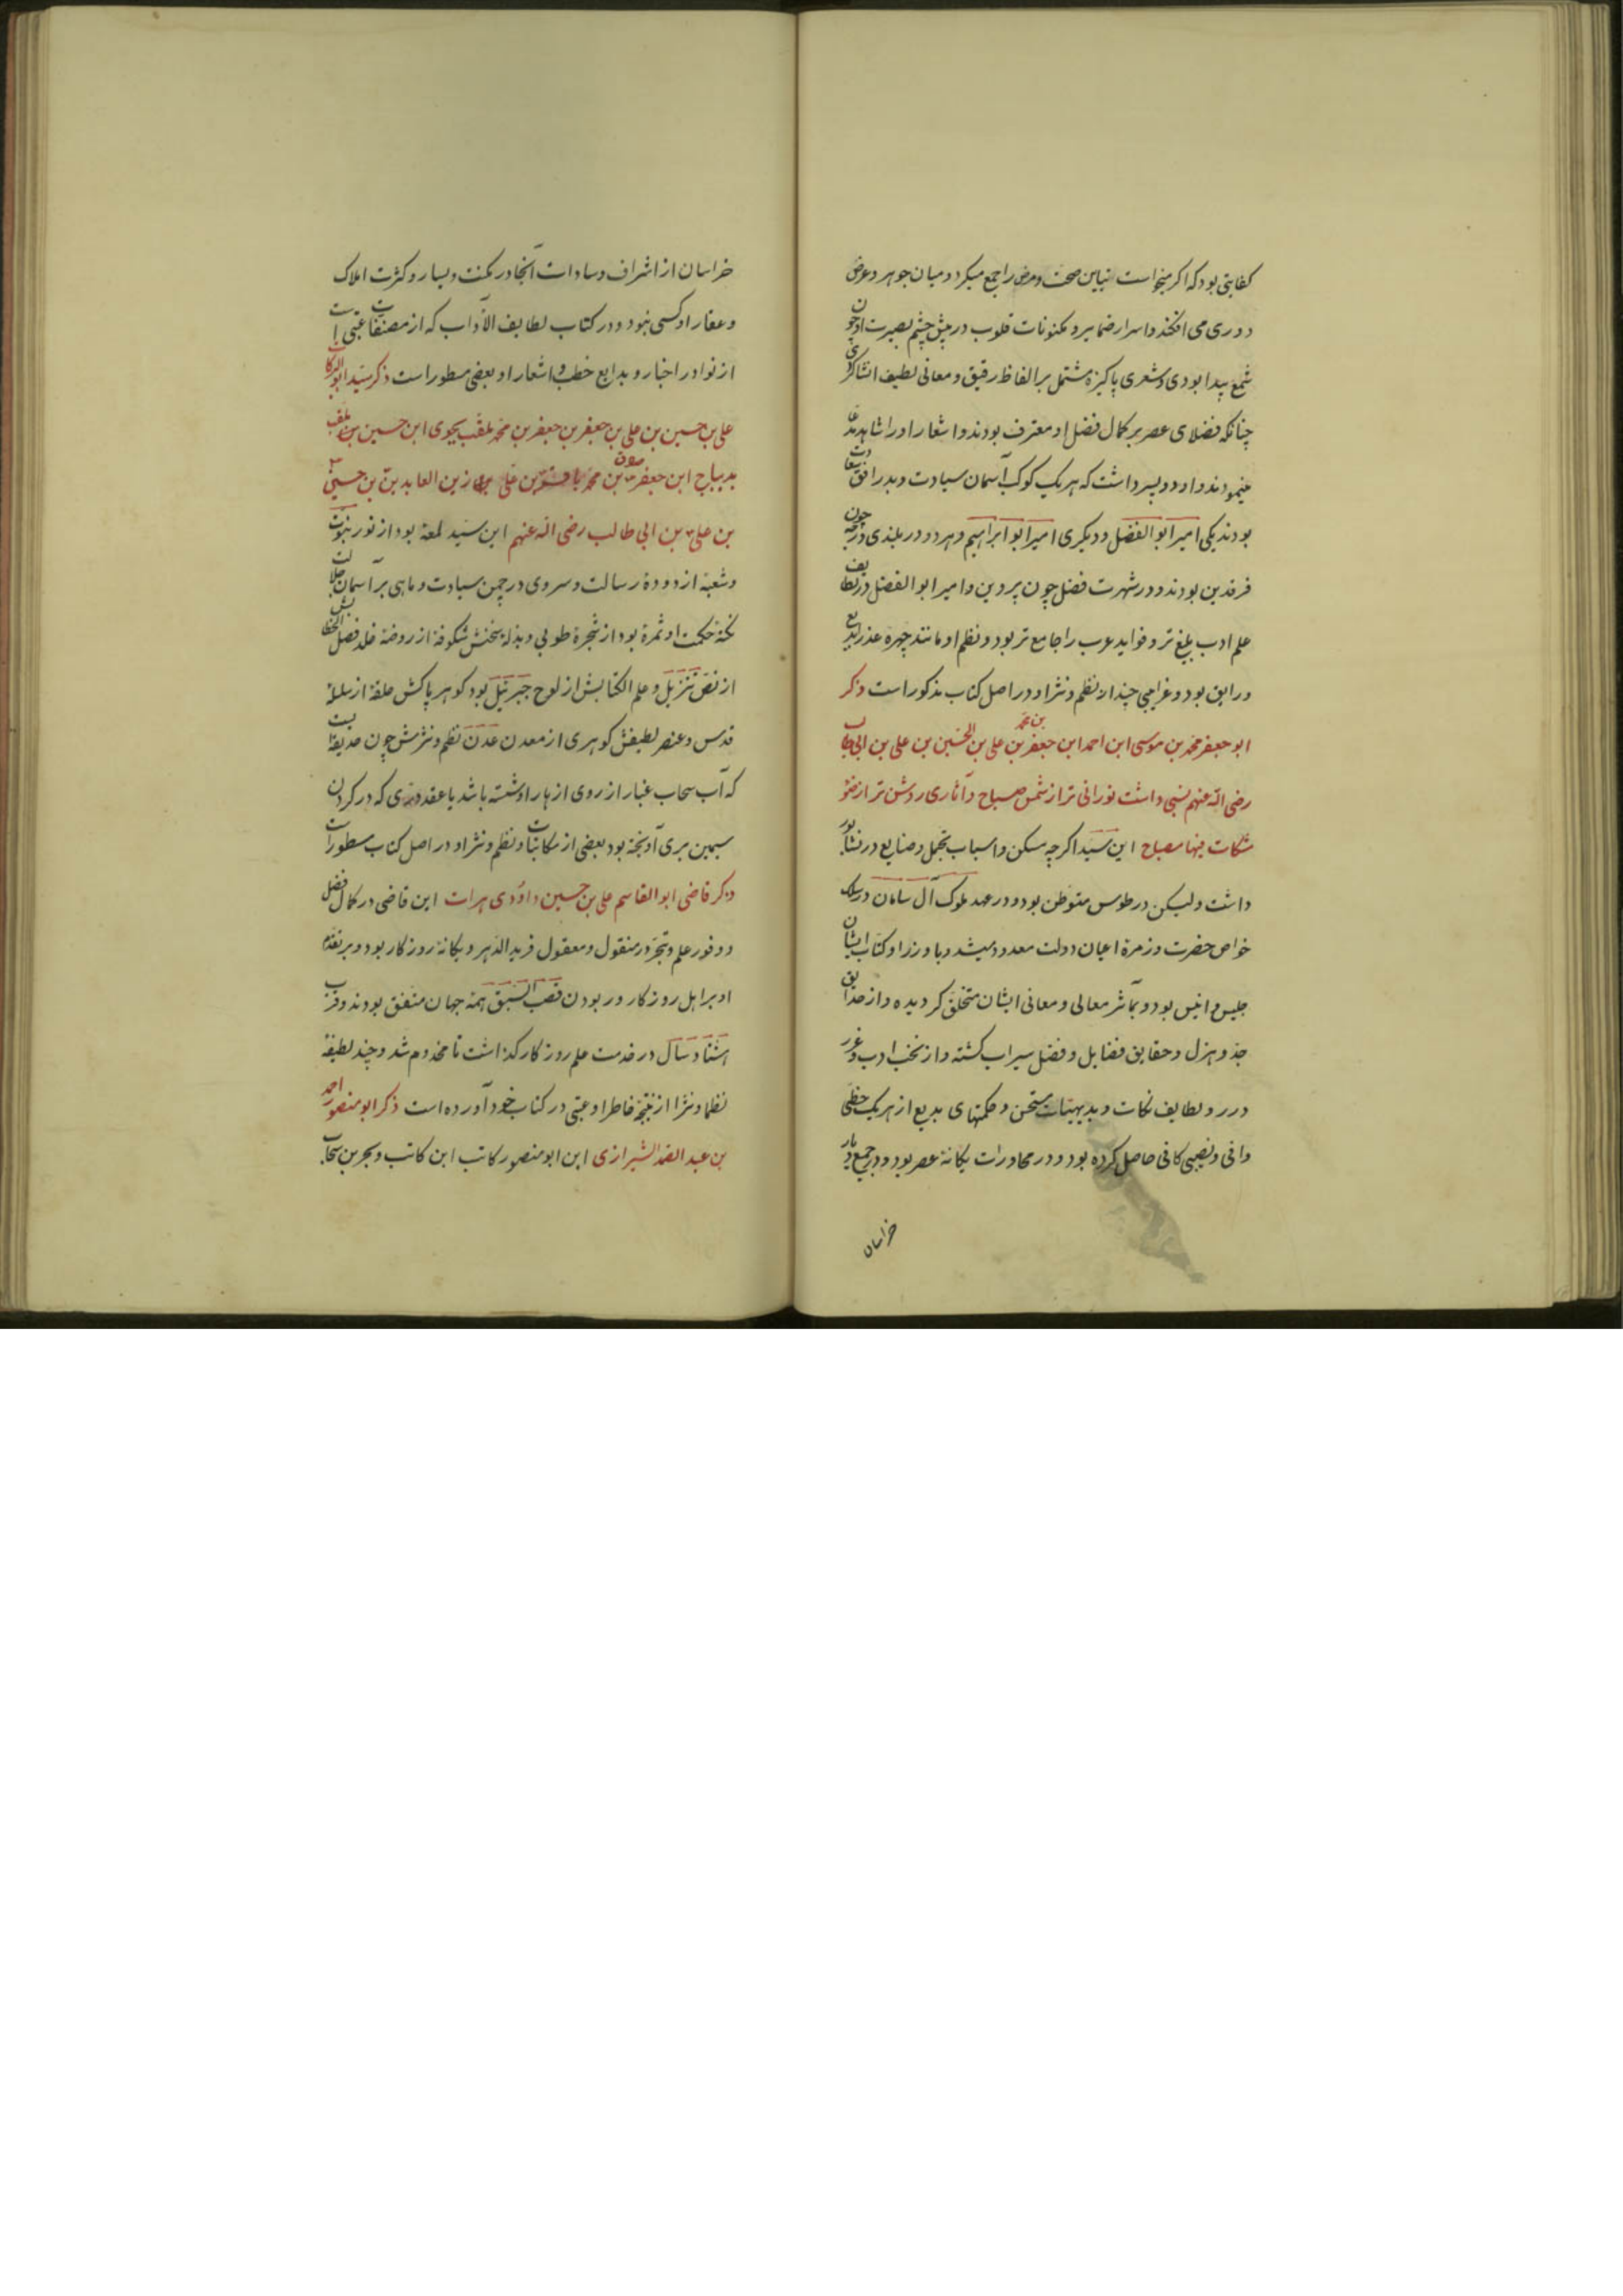 کفایتی بود که اگر میخواست میان صحت و مرض را جمع میکرد و میان جوهر و عرض
دوری می افکند و اسرار ضمایر و مکنونات قلوب در پیش چشم بصیرت او چون
شمع پیدا بودی و شعری پاکیزه مشتمل بر الفاظ رقیق و معانی لطیف انشا کردی
چنانکه فضلای عصر بر کمال فضل او معترف بودند و اشعار او را شاهد مدعا
مینمودند و او دو پسر داشت که هر یک کوکب آسمان سیادت و بدر افق سعادت
بودند یکی امیر ابو الفضل و دیگری امیر ابو ابراهیم و هر دو در بلندی درجه چون
فرقدین بودند و در شهرت فضل چون پروین و امیر ابو الفضل در لطایف
علم ادب بلیغ تر و فواید عرب را جامع تر بود و نظم او مانند چهره عذر بدیع
و رایق بود و غرایبی چند از نظم و نثر او در اصل کتاب مذکور است ذکر
ابو جعفر محمد بن موسی ابن احمد ابن محمد بن جعفر بن علی بن الحسین بن علی بن ابی طالب
رضی الله عنهم نسبی داشت نورانی تر از شمس صباح و آثاری روشن تر از ضوء
مشکات فیها مصباح این سید اگر چه مسکن و اسباب تجمل و ضیاع در نشابور
داشت ولیکن در طوس متوطن بود و در عهد ملوک آل سامان در سلک
خواص حضرت و زمرهٔ اعیان دولت معدود میشد و با وزرا و کتاب ایشان
جلیس و انیس بود و بمآثر معالی و معانی ایشان متخلق گردیده و از حدایق
جد و هزل و حقایق فضایل و فضل سیراب گشته و از نخب ادب و غرر
درر و لطایف نکات و بدیهیات مستحسن و حکمتهای بدیع از هر یک حظی
وافی و نصیبی کافی حاصل کرده بود و در محاورات یگانه عصر بود و در جمیع دیار
خراسان
خراسان از اشراف و سادات آنجا در مکنت و یسار و کثرت املاک
و عقار او کسی نبود و در کتاب لطایف الآداب که از مصنفات عتبی است
از نوادر اخبار و بدایع خطب و اشعار او بعضی مسطور است ذکر سید ابو البرکات
علی بن حسین بن علی بن جعفر بن جعفر بن محمد ملقب بجوی ابن حسین بن ملقب
بدیباج ابن جعفر صادق بن محمد باقر بن علی زین العابدین بن حسین
بن علی بن ابی طالب رضی الله عنهم این سید لمعهٔ بود از نور نبوت
و شعبهٔ از دودهٔ رسالت و سروی در چمن سیادت و ماهی بر آسمان جلالت
نکتهٔ حکمت او ثمرهٔ بود از شجرهٔ طوبی و بذلهٔ سخنش شکوفهٔ از روضهٔ خلد فصل الخطابش
از نص تنزیل و علم الکتابش از لوح جبرئیل بود گوهر پاکش حلقهٔ از سلسلهٔ
قدس و عنصر لطیفش گوهری از معدن عدن نظم و نثرش چون حدیقه ایست
که آب سحاب غبار از روی ازهار او شسته باشد یا عقد دری که در گردن
سیمین بری آویخته بود بعضی از مکاتبات و نظم و نثر او در اصل کتاب مسطور است
ذکر قاضی ابو القاسم علی بن حسین داودی هرات این قاضی در کمال فضل
و وفور علم و تبحر در منقول و معقول فرید الدهر و یگانهٔ روزگار بود و بر تقدم
او بر اهل روزگار و ربودن قصب السبق همه جهان متفق بودند و قرب
هشتاد سال در خدمت علم روزگار گذاشت تا مخدوم شد و چند لطیفه
نظما و نثرا از نتیجهٔ خاطر او عتبی در کتاب خود آورده است ذکر ابو منصور احمد
بن عبد الصمد الشیرازی این ابو منصور کاتب ابن کاتب و بحر بن سحاب